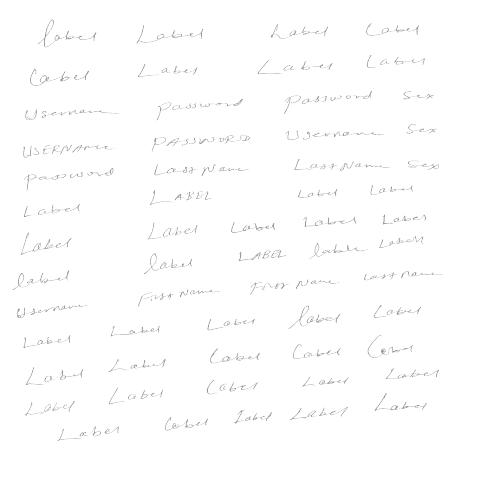 label Label Label Label
Label Label Label Label
Username Password Password Sex
USERNAME PASSWORD Username Sex
Password Last Name Last Name Sex
Label LABEL Label Label
Label Label Label Label Label
label label LABEL lable Label
Username First Name First Name Last Name
Label Label Label label Label
Label Label Label Label Label
Label Label Label Label Label
Label Label Label Label Label